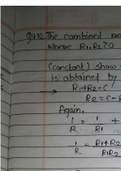 Q412. The combined
where R1, R2 > 0
(constant) show
is obtained by
R1+R2=C
R2=C-R
Again,
1/R = 1/R1 +
1/R = R1+R2 / R1R2